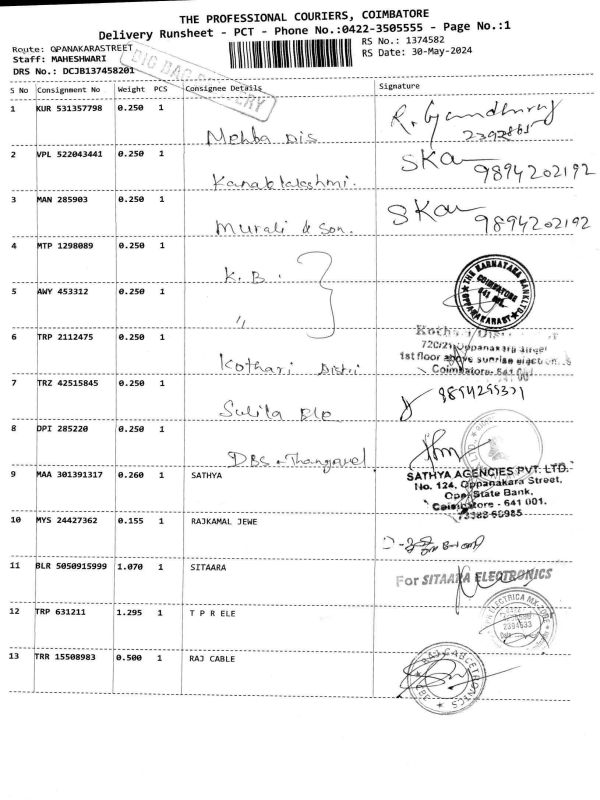 THE PROFESSIONAL COURIERS, COIMBATORE
Delivery Runsheet - PCT - Phone No.:0422-3505555 - Page No.:1
Route: OPANAKARASTREET
RS No.: 1374582
Staff: MAHESHWARI
RS Date: 30-May-2024
DRS No.: DCJB137458201
BIG BAG DELIVERY
S No Consignment No Weight PCS Consignee Details Signature
1 KUR 531357798 0.250 1 Mehta Dis
2392865
2 VPL 522043441 0.250 1 Kanaklakshmi. SKa 9894202192
3 MAN 285903 0.250 1 Murali & Son. SKa 9894202192
4 MTP 1298089 0.250 1 K. B.
THE KARNATAKA BANK LTD
COIMBATORE
641 001
OPPANAKARAST
5 AWY 453312 0.250 1 "
6 TRP 2112475 0.250 1 Kothari Distri
Kothari Distri
720/21, Oppanakara Street
1st floor above sunrise electronics
Coimbatore- 641 001
7 TRZ 42515845 0.250 1 9894299371
8 DPI 285220 0.250 1 DBS - Thangavel
9 MAA 301391317 0.260 1 SATHYA
SATHYA AGENCIES PVT. LTD.
No. 124, Oppanakara Street,
Opp State Bank,
Coimbatore - 641 001.
73388 60985
10 MYS 24427362 0.155 1 RAJKAMAL JEWE
11 BLR 5050915999 1.070 1 SITAARA
For SITAARA ELECTRONICS
12 TRP 631211 1.295 1 T P R ELE
2394933
13 TRR 15508983 0.500 1 RAJ CABLE